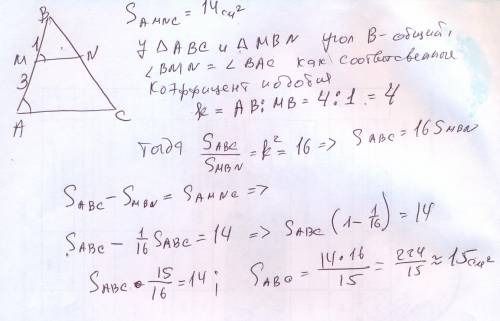 B
1
M
N
3
A
C
S AMNC = 14 см²
У △ABC и △MBN угол B - общий,
∠BMN = ∠BAC как соответственные
Коэффицент подобия
k = AB : MB = 4 : 1 = 4
Тогда S ABC / S MBN = k² = 16 => S ABC = 16 S MBN
S ABC - S MBN = S AMNC =>
S ABC - 1/16 S ABC = 14 => S ABC (1 - 1/16) = 14
S ABC · 15/16 = 14 ; S ABC = 14 · 16 / 15 = 224 / 15 ≈ 15 см²